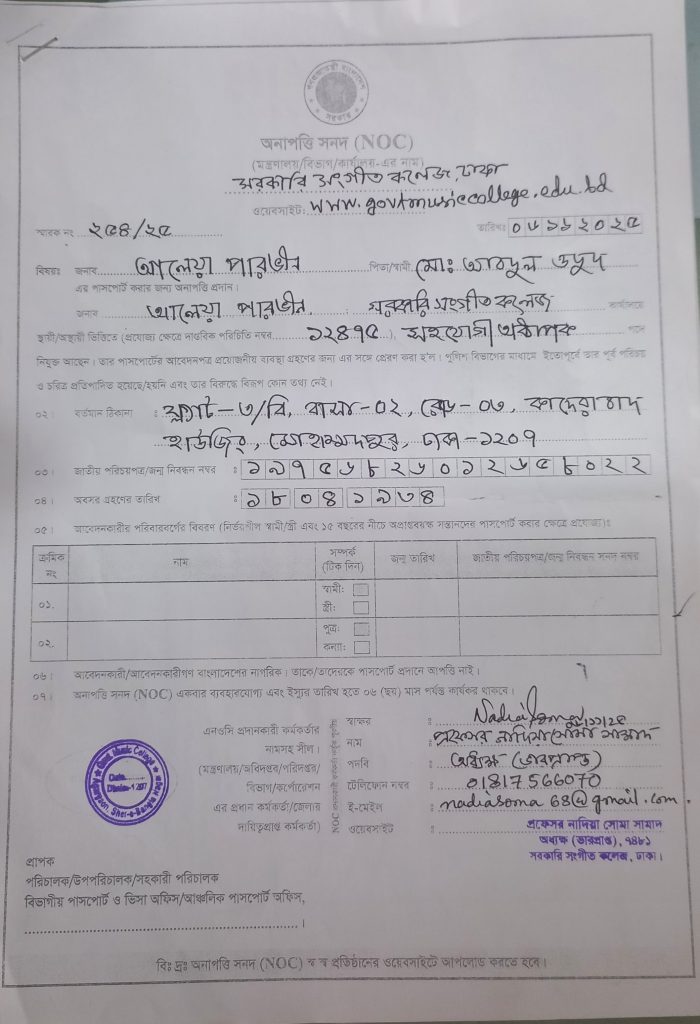 গণপ্রজাতন্ত্রী বাংলাদেশ
সরকার
অনাপত্তি সনদ (NOC)
(মন্ত্রণালয়/বিভাগ/কার্যালয়-এর নাম)
সরকারি সংগীত কলেজ, ঢাকা
ওয়েবসাইট: www.govtmusiccollege.edu.bd
স্মারক নং ২৫৪/২৫ তারিখ:
বিষয়ঃ জনাব আলেয়া পারভীন পিতা/স্বামী মোঃ আবদুল ওদুদ
এর পাসপোর্ট করার জন্য অনাপত্তি প্রদান।
জনাব আলেয়া পারভীন সরকারি সংগীত কলেজ কার্যালয়ে
স্থায়ী/অস্থায়ী ভিত্তিতে (প্রযোজ্য ক্ষেত্রে দাপ্তরিক পরিচিতি নম্বর ১২৪৭৫), সহযোগী অধ্যাপক পদে
নিযুক্ত আছেন। তার পাসপোর্টের আবেদনপত্র প্রয়োজনীয় ব্যবস্থা গ্রহণের জন্য এর সঙ্গে প্রেরণ করা হ'ল। পুলিশ বিভাগের মাধ্যমে ইতোপূর্বে তার পূর্ব পরিচয়
ও চরিত্র প্রতিপাদিত হয়েছে/হয়নি এবং তার বিরুদ্ধে বিরূপ কোন তথ্য নেই।
০২। বর্তমান ঠিকানা : ফ্ল্যাট-৩/বি, বাসা-০২, রোড-০৬, কাদেরাবাদ
হাউজিং, মোহাম্মদপুর, ঢাকা-১২০৭
০৩। জাতীয় পরিচয়পত্র/জন্ম নিবন্ধন নম্বর :
০৪। অবসর গ্রহণের তারিখ :
০৫। আবেদনকারীর পরিবারবর্গের বিবরণ (নির্ভরশীল স্বামী/স্ত্রী এবং ১৫ বছরের নীচে অপ্রাপ্তবয়স্ক সন্তানদের পাসপোর্ট করার ক্ষেত্রে প্রযোজ্য)ঃ
ক্রমিক নং নাম সম্পর্ক (টিক দিন) জন্ম তারিখ জাতীয় পরিচয়পত্র/জন্ম নিবন্ধন সনদ নম্বর
০১. স্বামী:
স্ত্রী:
০২. পুত্র:
কন্যা:
০৬। আবেদনকারী/আবেদনকারীগণ বাংলাদেশের নাগরিক। তাকে/তাদেরকে পাসপোর্ট প্রদানে আপত্তি নাই।
০৭। অনাপত্তি সনদ (NOC) একবার ব্যবহারযোগ্য এবং ইস্যুর তারিখ হতে ০৬ (ছয়) মাস পর্যন্ত কার্যকর থাকবে।
এনওসি প্রদানকারী কর্মকর্তার স্বাক্ষর :
নামসহ সীল। নাম : প্রফেসর নাদিয়া সোমা সামাদ
(মন্ত্রণালয়/অধিদপ্তর/পরিদপ্তর/ পদবি : অধ্যক্ষ (ভারপ্রাপ্ত)
বিভাগ/কর্পোরেশন টেলিফোন নম্বর : 01817566070
এর প্রধান কর্মকর্তা/জেলার ই-মেইল : nadiasoma68@gmail.com
দায়িত্বপ্রাপ্ত কর্মকর্তা) ওয়েবসাইট :
প্রফেসর নাদিয়া সোমা সামাদ
অধ্যক্ষ (ভারপ্রাপ্ত), ৭৪৮১
সরকারি সংগীত কলেজ, ঢাকা।
প্রাপক
পরিচালক/উপপরিচালক/সহকারী পরিচালক
বিভাগীয় পাসপোর্ট ও ভিসা অফিস/আঞ্চলিক পাসপোর্ট অফিস,
বিঃ দ্রঃ অনাপত্তি সনদ (NOC) স্ব স্ব প্রতিষ্ঠানের ওয়েবসাইটে আপলোড করতে হবে।